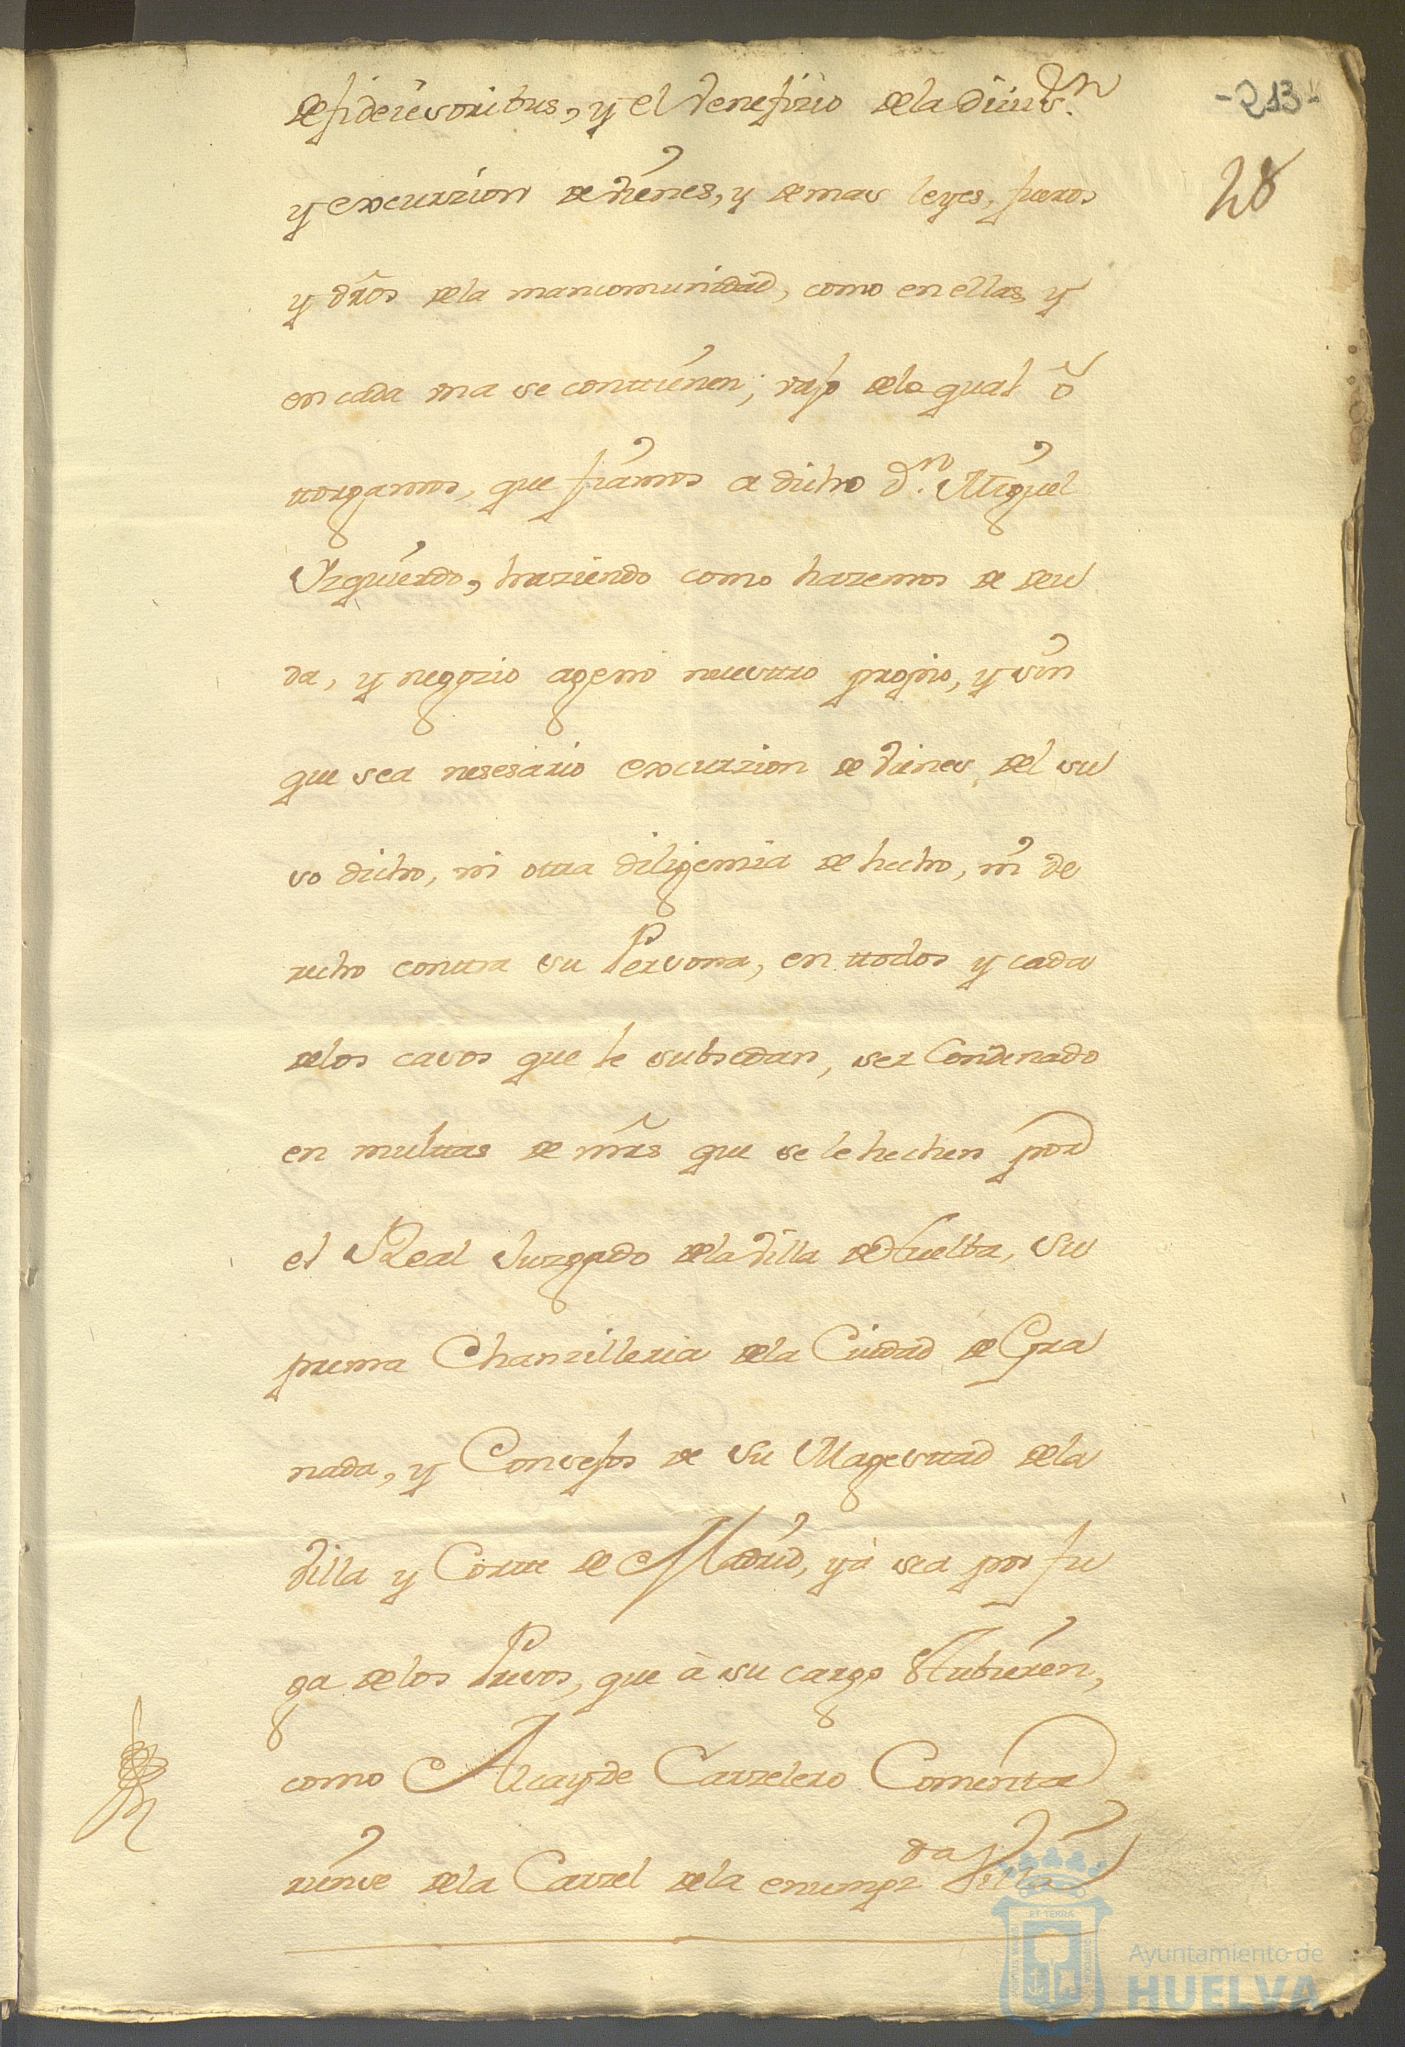 -213-
28
de fideiusoribus, y el venefizio de la divis.n
y excurzion de vienes, y demas leyes, fueros
y dros de la mancomunidad, como en ellas, y
en cada una se conttienen; vajo de lo qual o
ttorgamos, que fiamos a dicho Dn. Miguel
Yzquierdo, haziendo como hazemos de deu
da, y negozio ageno nuesttro proprio, y sin
que sea nesesario excurzion de vienes del su
so dicho, ni otra diligenzia de hecho, ni de
recho conttra su Persona, en ttodos y cada
de los casos que le subsedan, ser Condenado
en multtas de mrs que se le hechen por
el Real Juzgado de la Villa de Huelba, Su
prema Chanzilleria de la Ciudad de Gra
nada, y Consejos de Su Magesttad de la
Villa y Cortte de Madrid, ya sea por fu
ga de los Presos, que à su cargo Hubieren,
como Alcayde Carzelero Comenttar
riense de la Carzel de la enumpz.da Villa
Ayuntamiento de
HUELVA